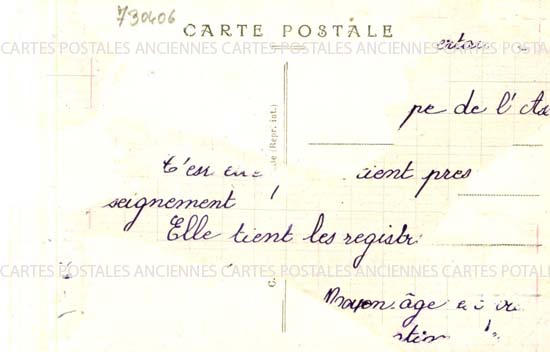 730406
CARTE POSTALE
CARTES POSTALES ANCIENNES CARTES POSTALES ANCIENNES CARTES POSTALES
pe de l'As
(Repr. int.)
C'est une ient pres
seignement
Elle tient les registr
CARTES POSTALES ANCIENNES CARTES POSTALES ANCIENNES CARTES POTALES
Moyen âge